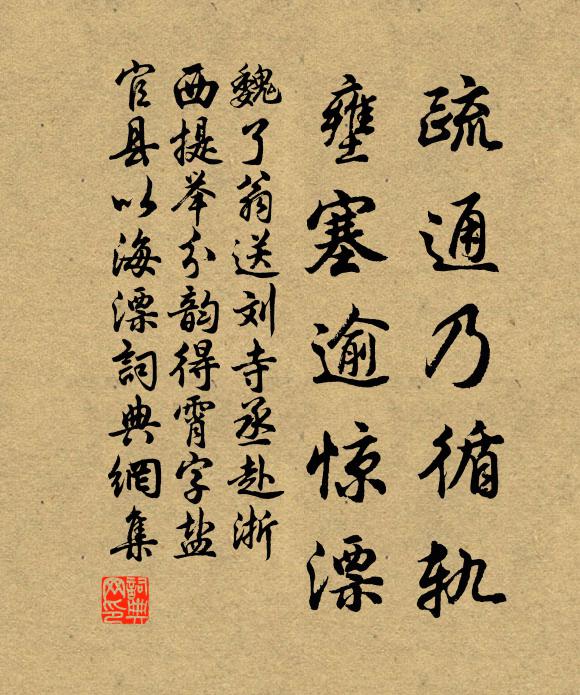 疏通乃循轨
壅塞逾惊漂
魏了翁送刘寺丞赴浙
西提举分韵得霄字盐
官县以海漂詞典網集
詞典网印